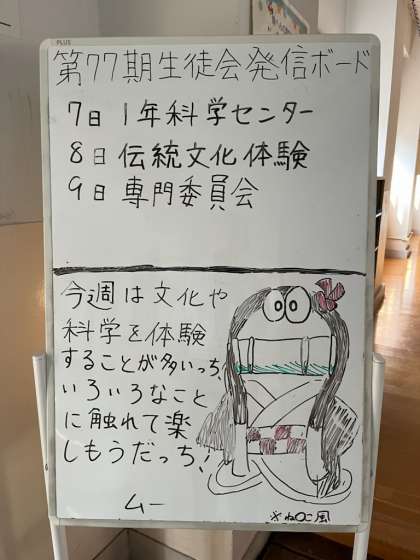 PLUS
第77期生徒会発信ボード
7日 1年科学センター
8日 伝統文化体験
9日 専門委員会
今週は文化や
科学を体験
することが多いっち、
いろいろなこと
に触れて楽
しもうだっち!
ムー
※ねずこ風